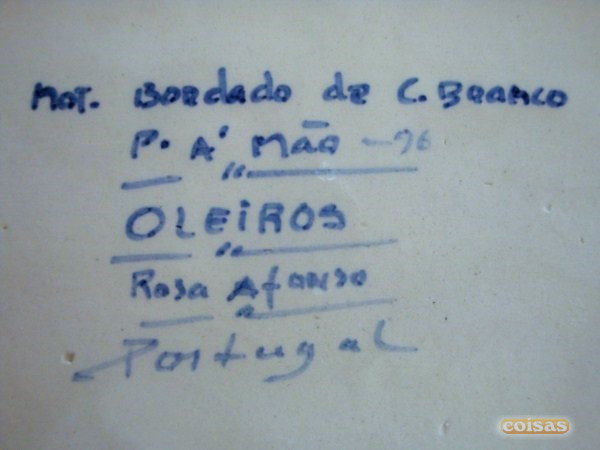 MOT. BORDADO de C. BRANCO
P. A' MÃO - 96
OLEIROS
Rosa Afonso
Portugal
coisas